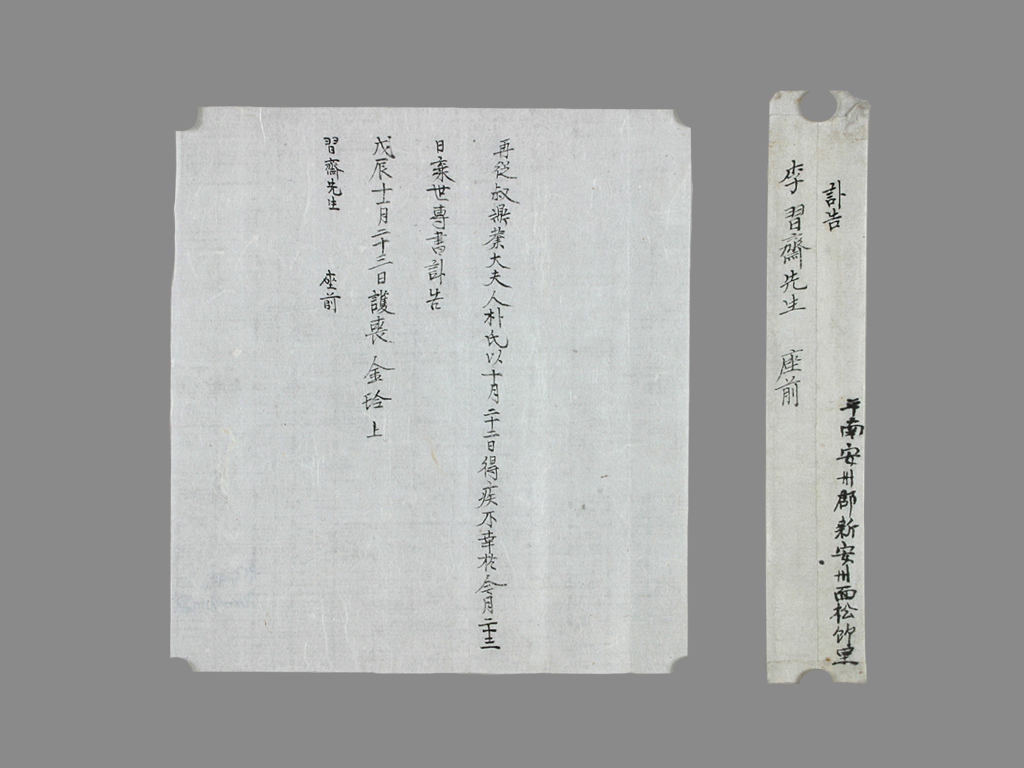 平南安州郡新安州面松竹里
訃告
李習齋先生 座前
再從叔大夫人朴氏以十月二十二日得疾不幸於今月二十三
日棄世專書訃告
戊辰十一月二十三日護喪 金 上
習齋先生 座前